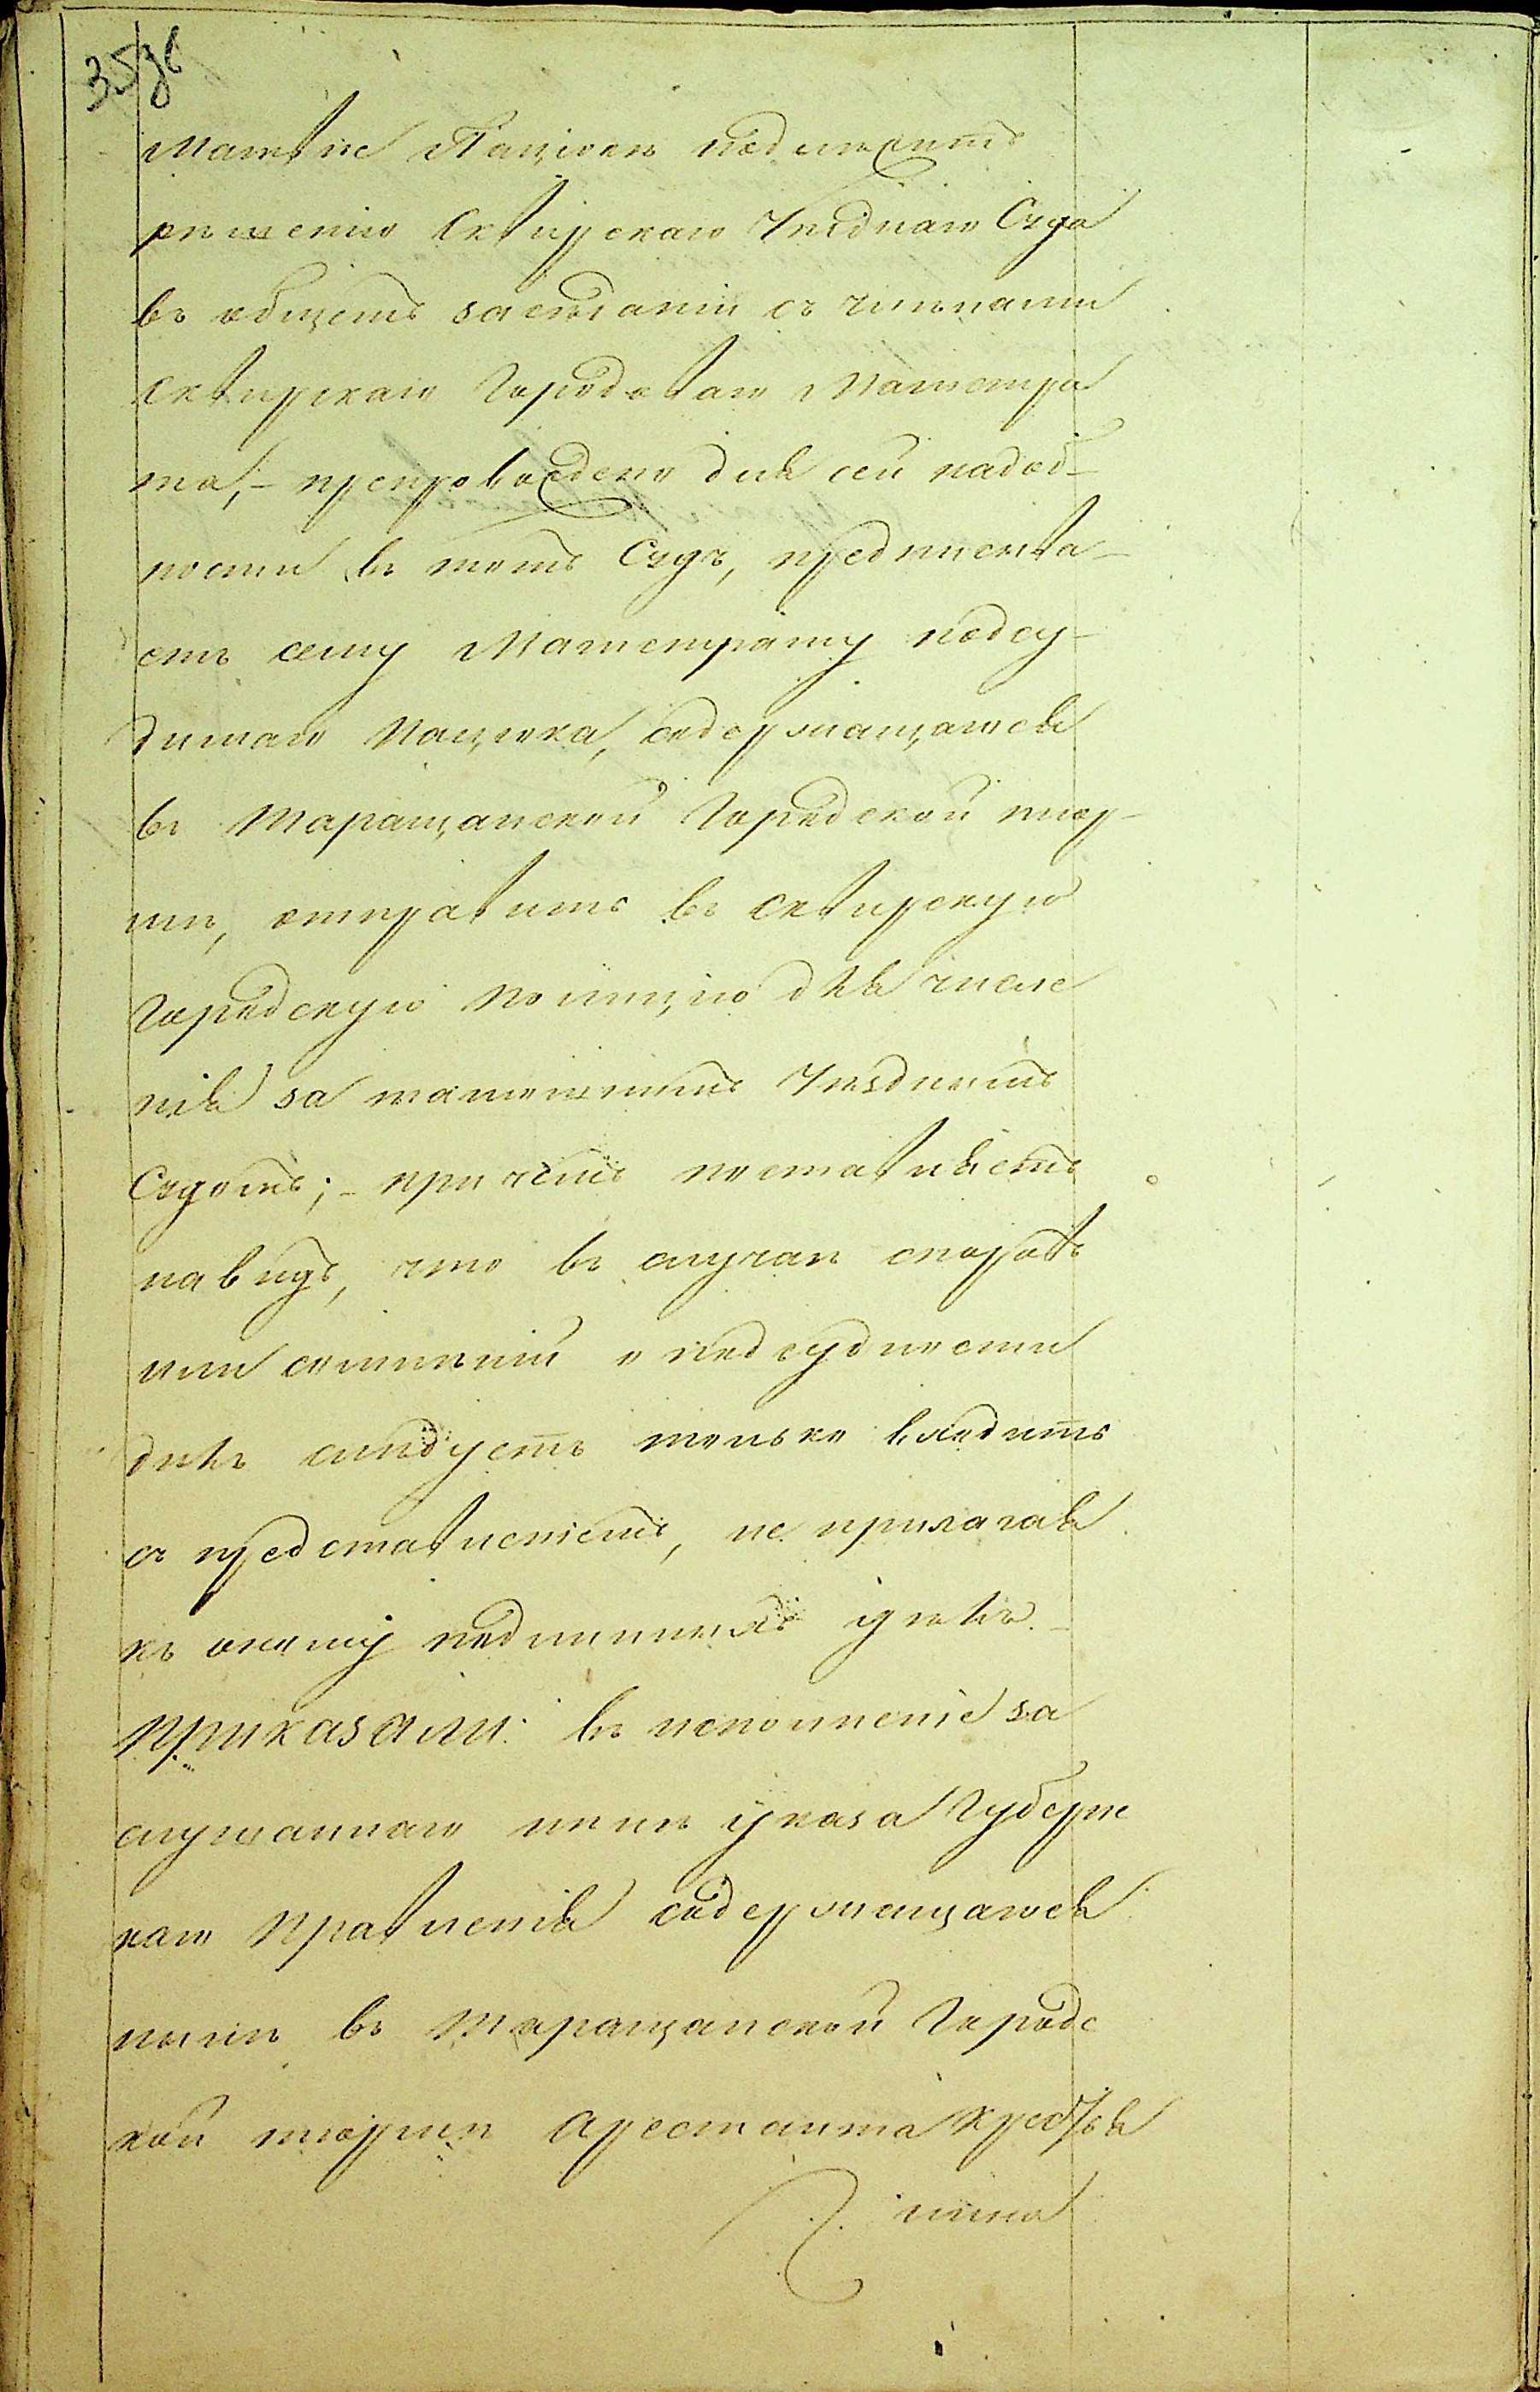 35зв
Матвѣе Пацюкѣ подлежитъ
рѣшенію Сквирскаго Уѣзднаго Суда
въ общемъ засѣданіи съ членами
Сквирскаго Городоваго Магистра
та, - препровождено для сей надоб-
ности въ тотъ Судъ, предписыва-
етъ сему Магистрату подсу-
димаго Пацюка, содержащагося
въ Таращанской Городской тюр-
мѣ, отправить въ Сквирскую
Городскую Полицію для числе
нія за тамошнимъ Уѣзднымъ
Судомъ; - при чемъ поставляетъ
навидъ, что въ случаѣ споровъ
или сомнѣній о подсудности
дѣлъ слѣдуетъ только входить
съ представленіемъ, не прилагая
къ оному подлинныхъ дѣлъ. -
Приказали: въ исполненіе за
слушаннаго нынѣ указа Губерн
каго Правленія содержащагося
нынѣ въ Таращанской Городс
кой тюрмѣ арестанта крестья
нина